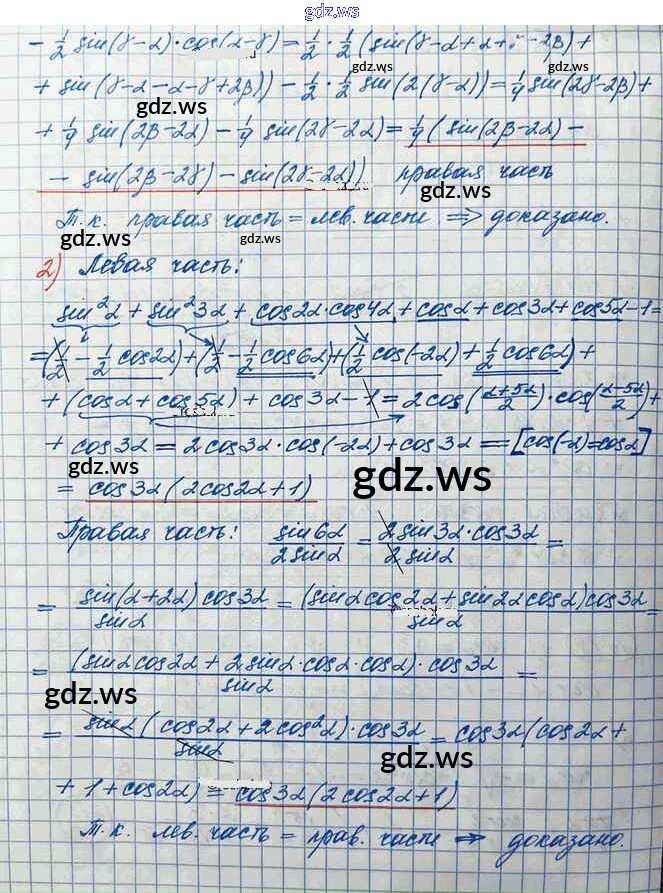 gdz.ws
- 1/2 sin(γ-α)·cos(α-γ) = 1/2 · 1/2 (sin(γ-α+α+γ-2β)+
+ sin(γ-α-α-γ+2β)) - 1/2 · 1/2 sin(2(γ-α)) = 1/4 sin(2γ-2β)+
gdz.ws
gdz.ws
+ 1/4 sin(2β-2α) - 1/4 sin(2γ-2α) = 1/4 (sin(2β-2α) -
- sin(2β-2γ) - sin(2γ-2α)) правая часть
gdz.ws
Т.к. правая часть = лев. части ⇒ доказано.
gdz.ws
gdz.ws
2) Левая часть:
sin²α + sin²3α + cos2α·cos4α + cosα + cos3α + cos5α - 1 =
= (1/2 - 1/2 cos2α) + (1/2 - 1/2 cos6α) + (1/2 cos(-2α) + 1/2 cos6α) +
+ (cosα + cos5α) + cos3α - 1 = 2cos((α+5α)/2)·cos((α-5α)/2) +
+ cos3α = 2cos3α·cos(-2α) + cos3α = [cos(-α)=cosα]
gdz.ws
= cos3α(2cos2α+1)
gdz.ws
Правая часть: sin6α/2sinα = 2sin3α·cos3α/2sinα =
= sin(α+2α)cos3α/sinα = (sinαcos2α+sin2αcosα)cos3α/sinα =
= (sinαcos2α + 2sinα·cosα·cosα)·cos3α/sinα =
gdz.ws
= sinα(cos2α+2cos²α)·cos3α/sinα = cos3α(cos2α+
gdz.ws
+ 1 + cos2α) = cos3α(2cos2α+1)
Т.к. лев. часть = прав. части ⇒ доказано.
gdz.ws